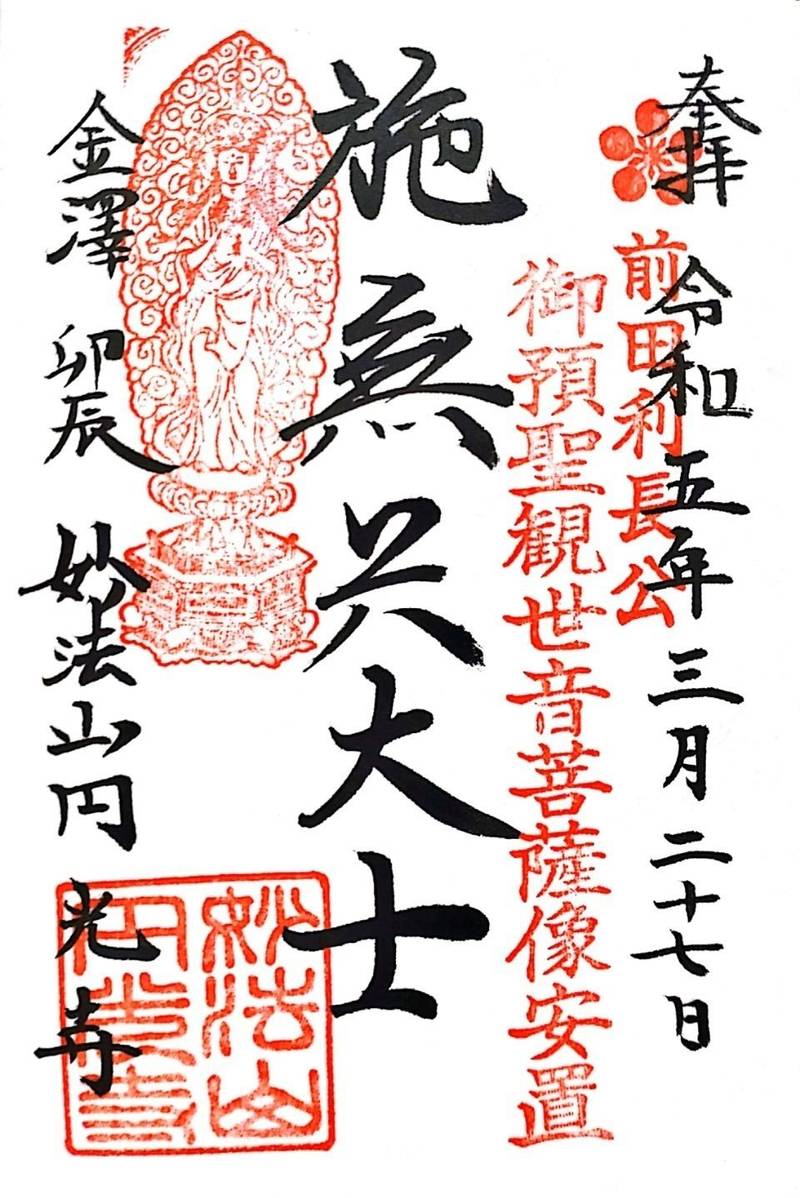 奉拝 令和五年三月二十七日
前田利長公
御預聖観世音菩薩像安置
施無畏大士
金澤 卯辰 妙法山円光寺
妙法山
円光寺